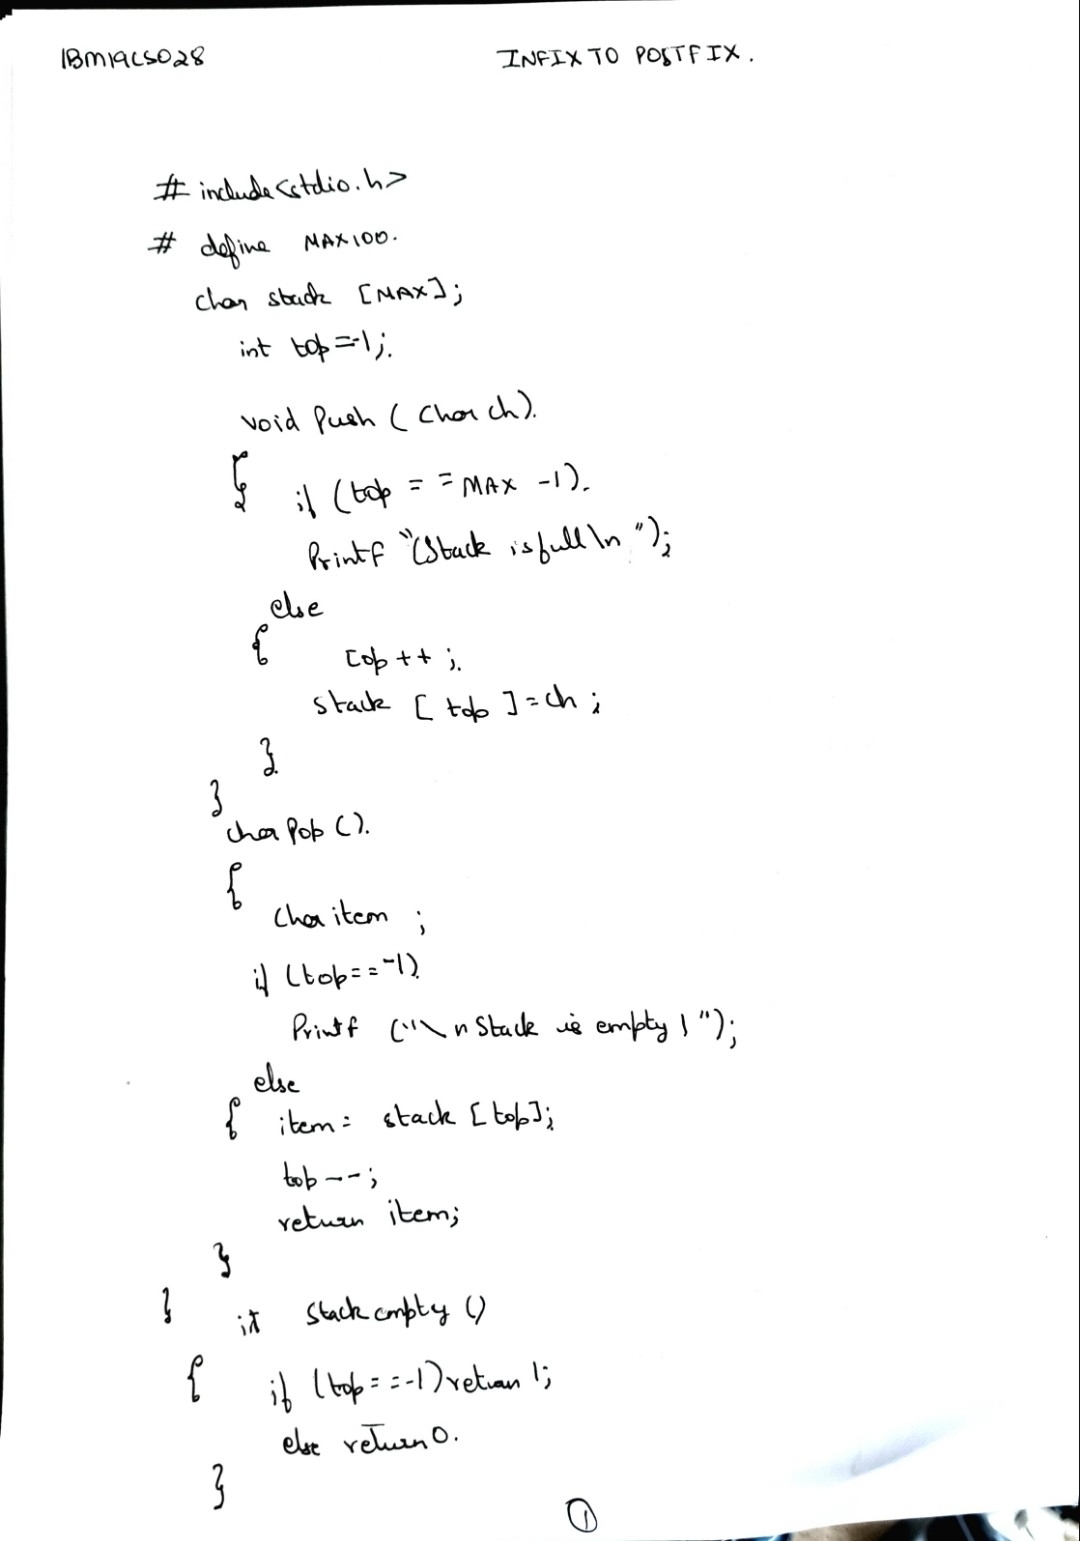 1BM19CS028
INFIX TO POSTFIX.
# include <stdio.h>
# define MAX 100.
char stack [MAX];
int top =-1;.
void Push ( Char ch).
{
if (top = = MAX -1).
Printf "(Stack is full \n ");
else
{ top ++ ;.
stack [ top ] = ch ;
}
}
char Pop ().
{
Char item ;
if (top == -1).
Printf ("\ n Stack is empty ! ");
else
{ item = stack [top];
top --;
return item;
}
} int Stack empty ()
{ if (top = = -1) return 1;
else return 0.
}
1